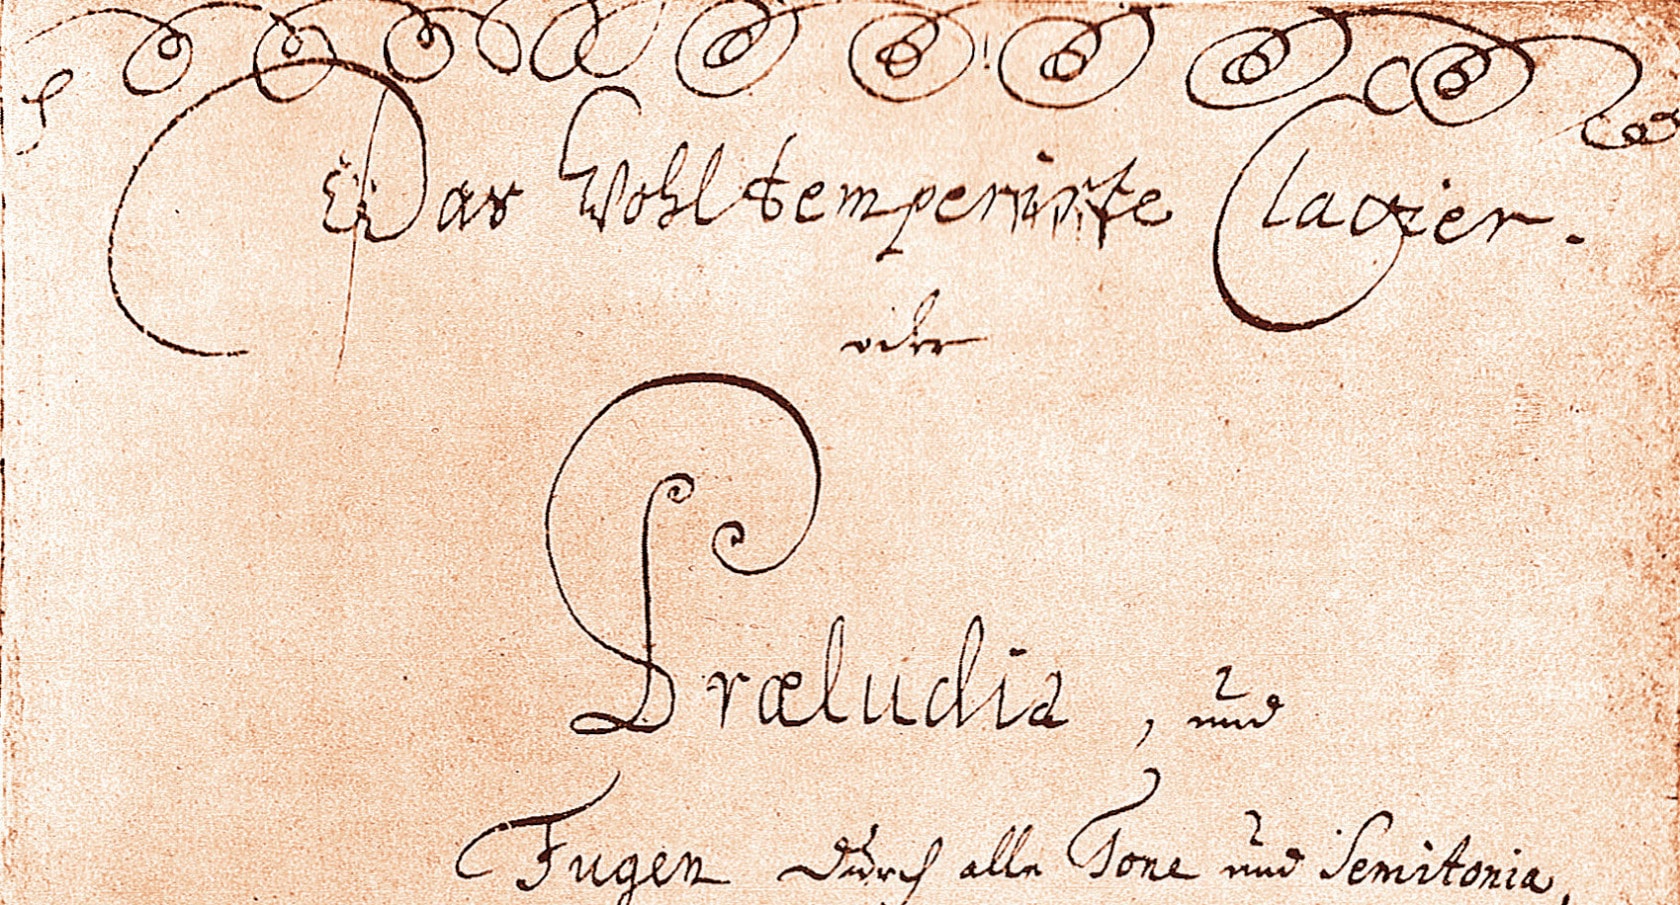 Das Wohltemperirte Clavier.
oder
Præludia, und
Fugen durch alle Tone und Semitonia,